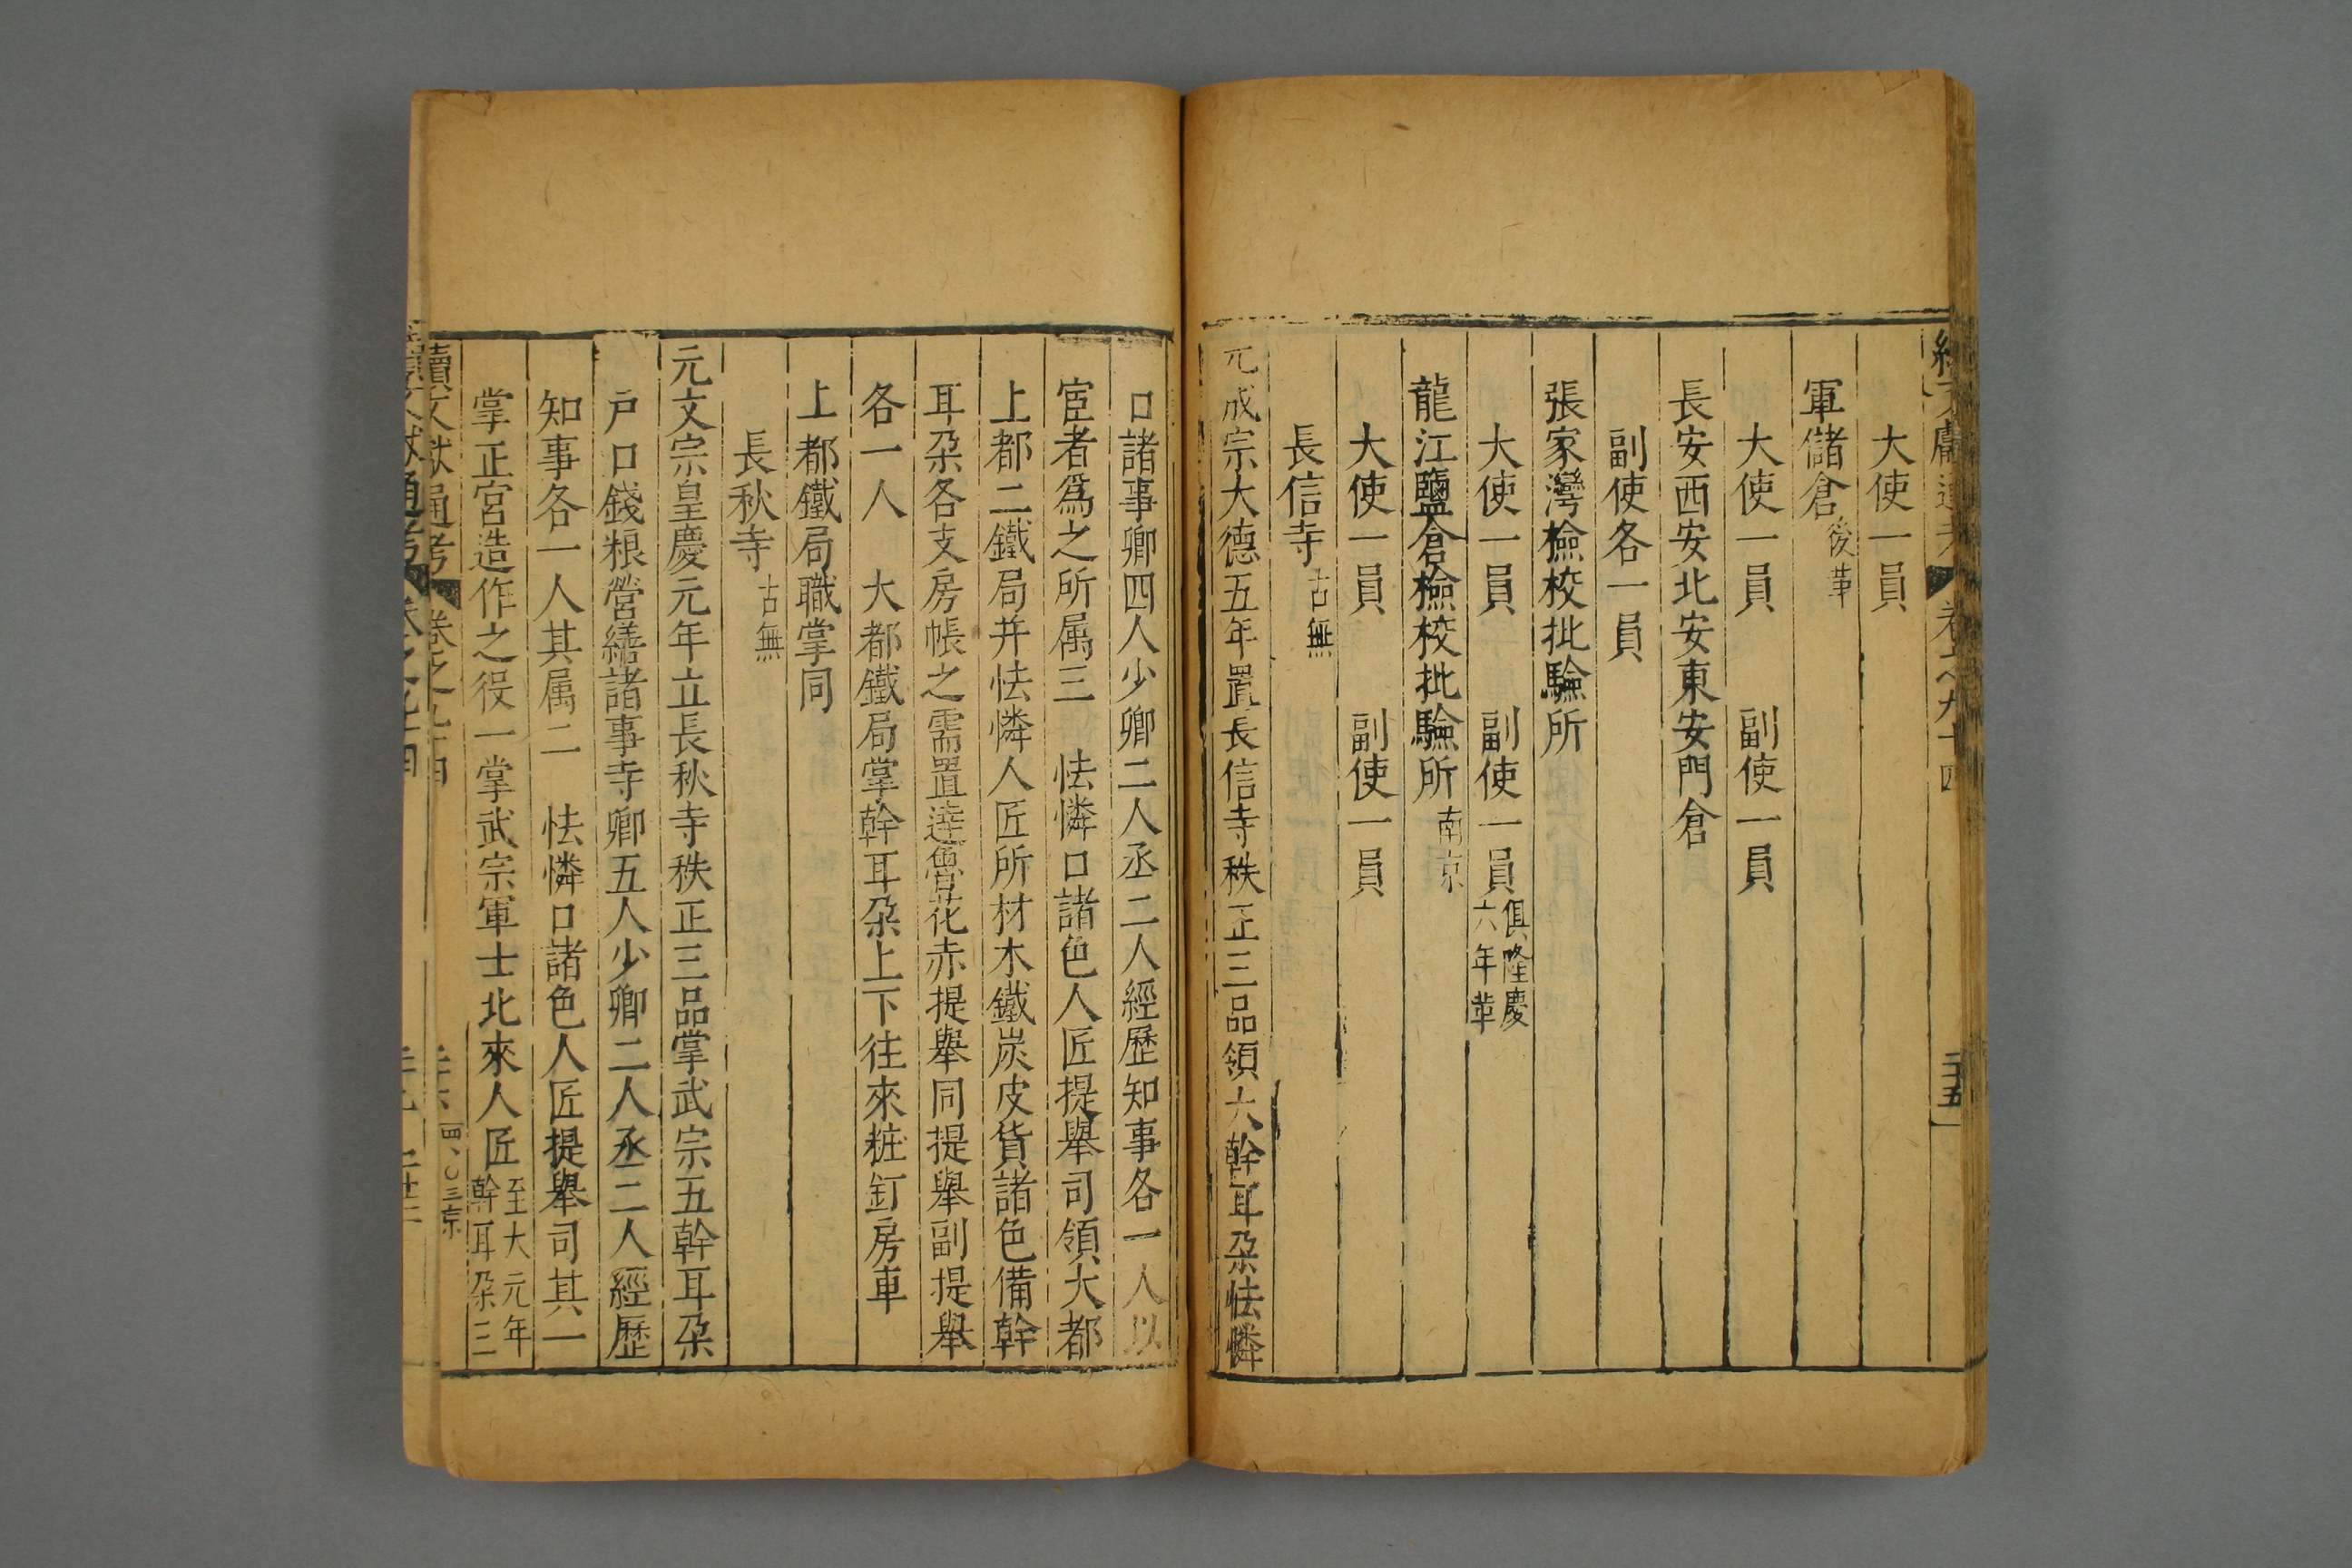 大使一員
軍儲倉後革
大使一員 副使一員
長安西安北安東安門倉
副使各一員
張家灣檢校批驗所
大使一員 副使一員俱隆慶六年革
龍江鹽倉檢校批驗所南京
大使一員 副使一員
長信寺古無
元成宗大德五年置長信寺秩正三品領大斡耳朵怯憐
口諸事卿四人少卿二人丞二人經歷知事各一人以
宦者爲之所属三 怯憐口諸色人匠提舉司領大都
上都二鐵局并怯憐人匠所材木鐵炭皮貨諸色備斡
耳朵各支房帳之需置達魯花赤提舉同提舉副提舉
各一人 大都鐵局掌斡耳朵上下往來粧釘房車
上都鐵局職掌同
長秋寺古無
元文宗皇慶元年立長秋寺秩正三品掌武宗五斡耳朵
戶口錢粮營繕諸事寺卿五人少卿二人丞二人經歷
知事各一人其属二 怯憐口諸色人匠提舉司其一
掌正宮造作之役一掌武宗軍士北來人匠至大元年斡耳朵三
續文獻通考 卷之九十四